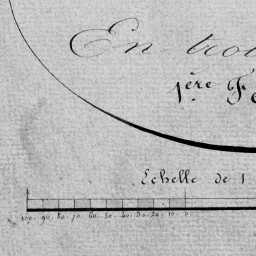 En trois
1ère Fe
Echelle de 1
100. 90. 80. 70. 60. 50. 40. 30. 20. 10. 0.